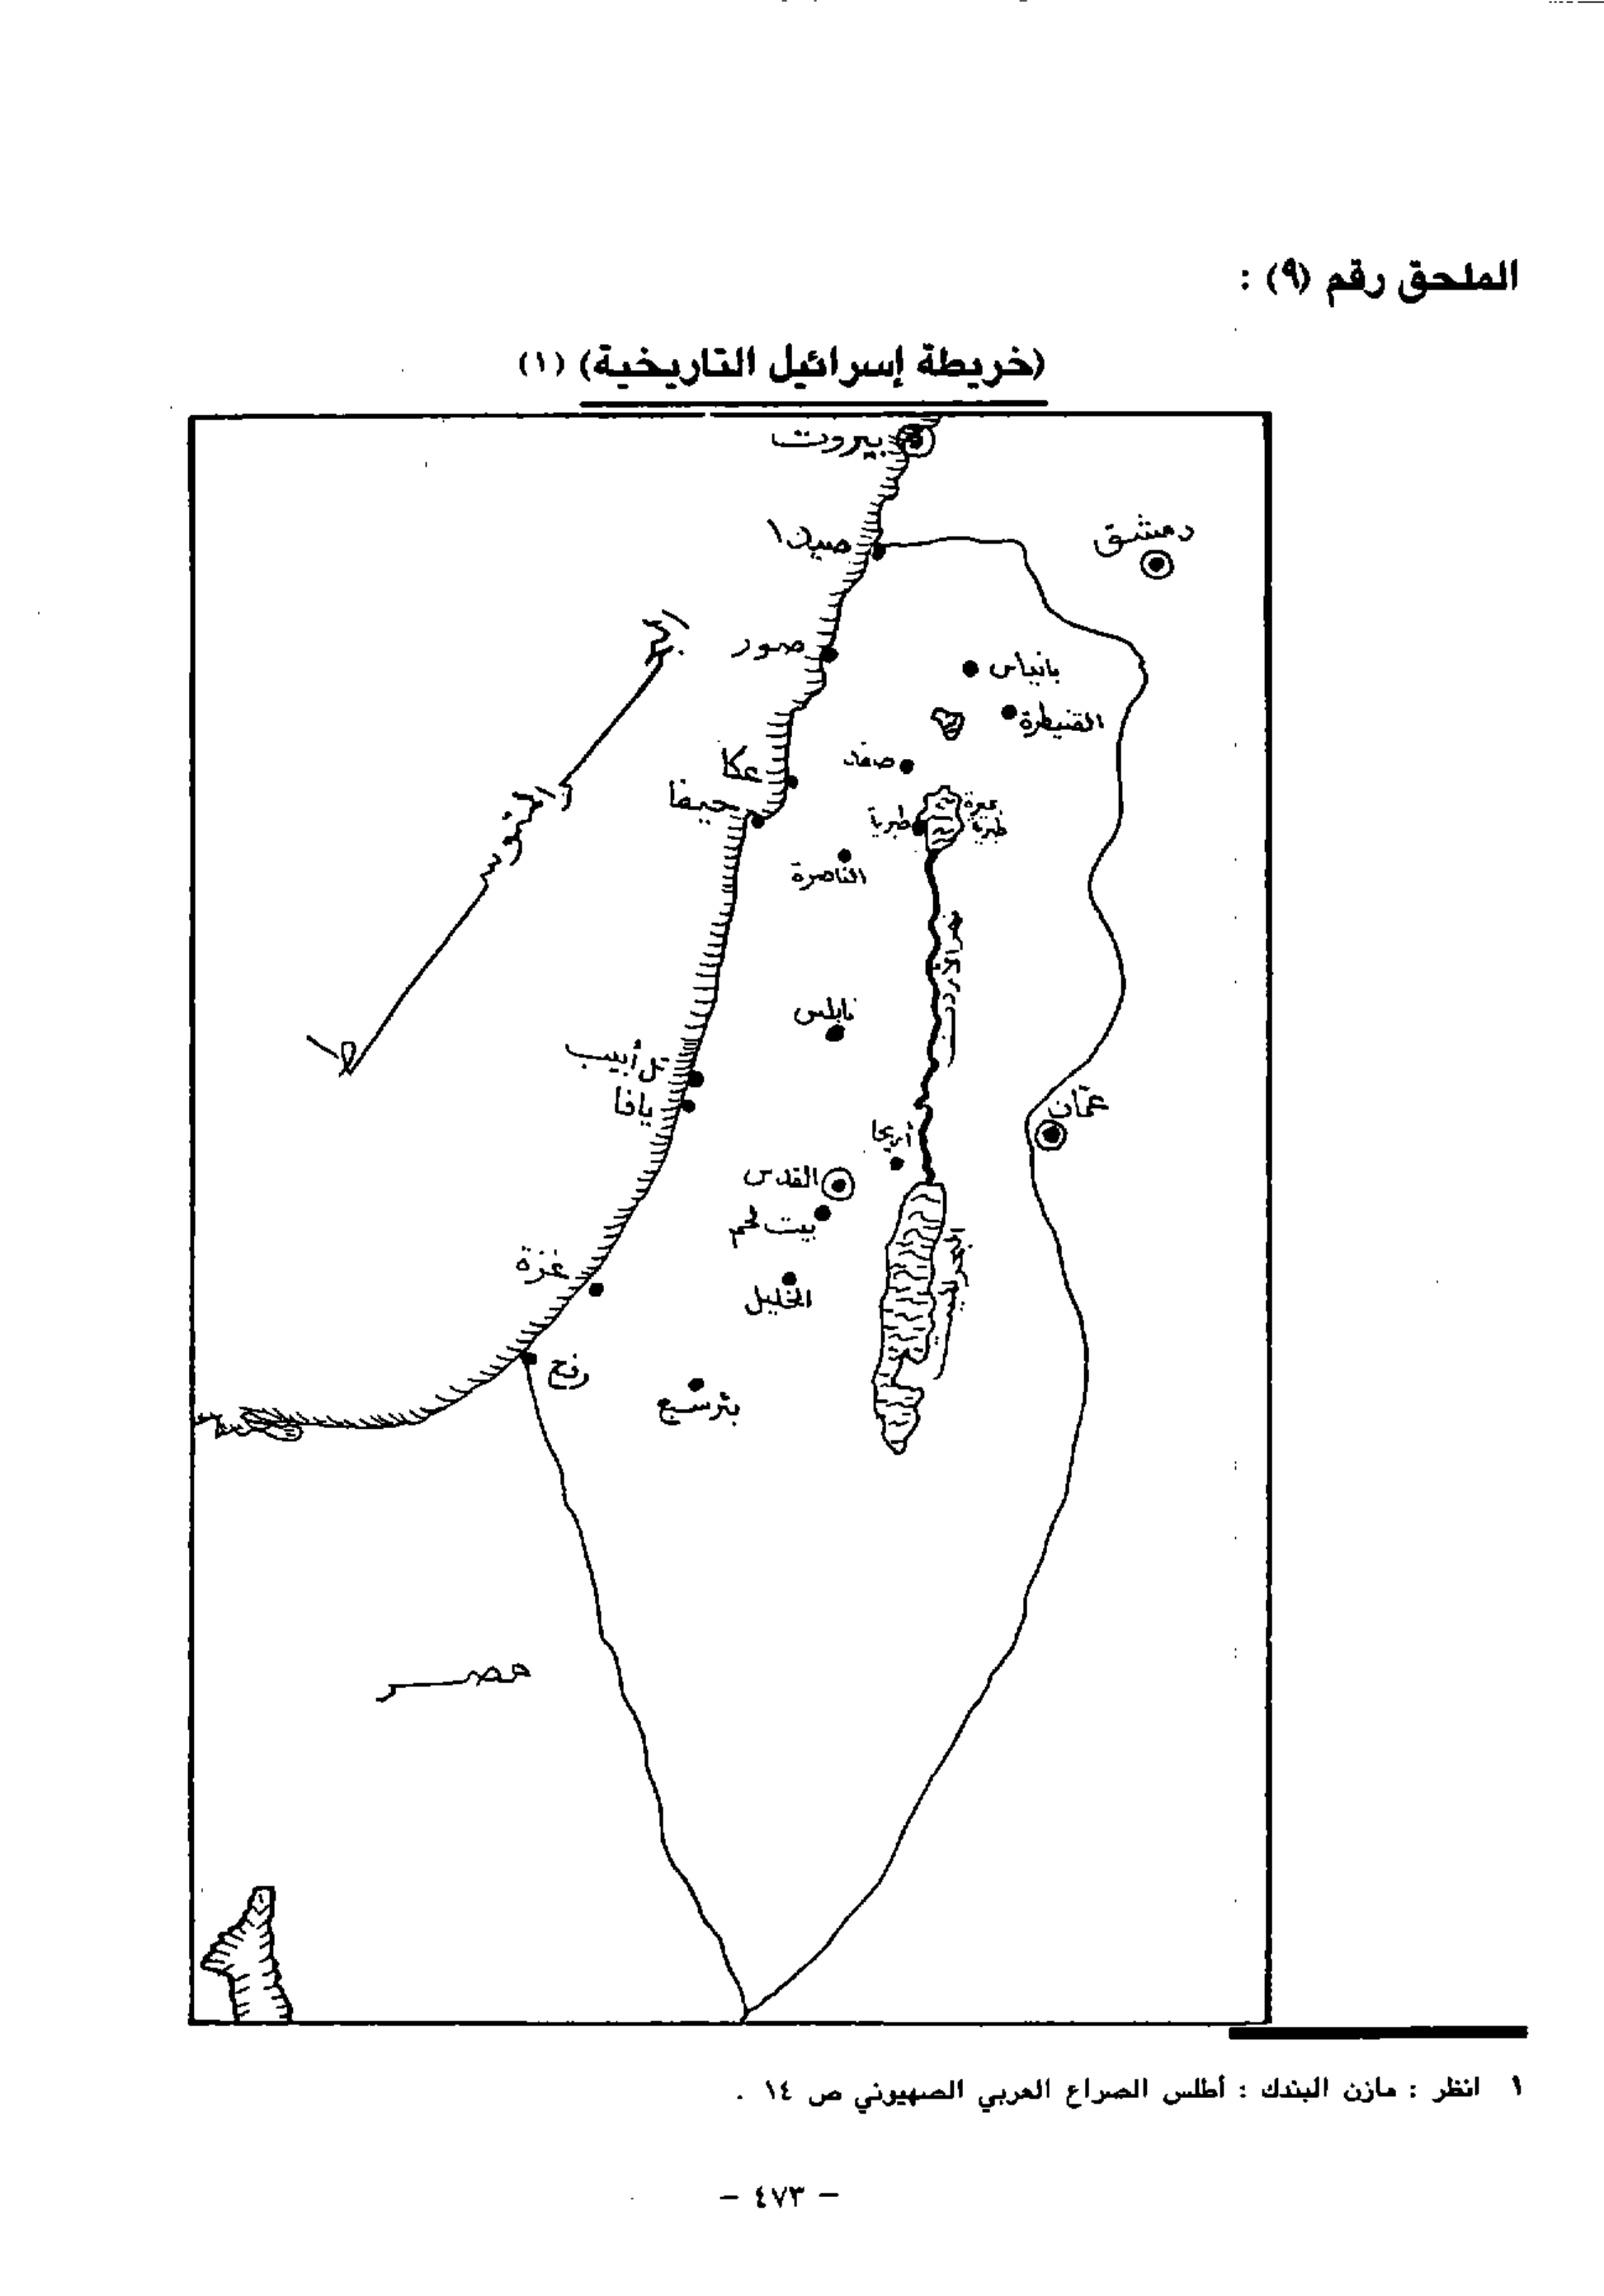 الملحق رقم (٩) :
(خريطة إسرائيل التاريخية) (١)
بيروت
دمشق
صيدا
البحر المتوسط
صور
بانياس
القنيطرة
عكا
صفد
حيفا
طبريا
بحيرة
طبريا
الناصرة
نهر الأردن
نابلس
تل أبيب
يافا
عمّان
أريحا
القدس
بيت لحم
غزة
الخليل
رفح
بئر سبع
مصر
١ انظر : مازن البندك : أطلس الصراع العربي الصهيوني ص ١٤ .
- ٤٧٣ -